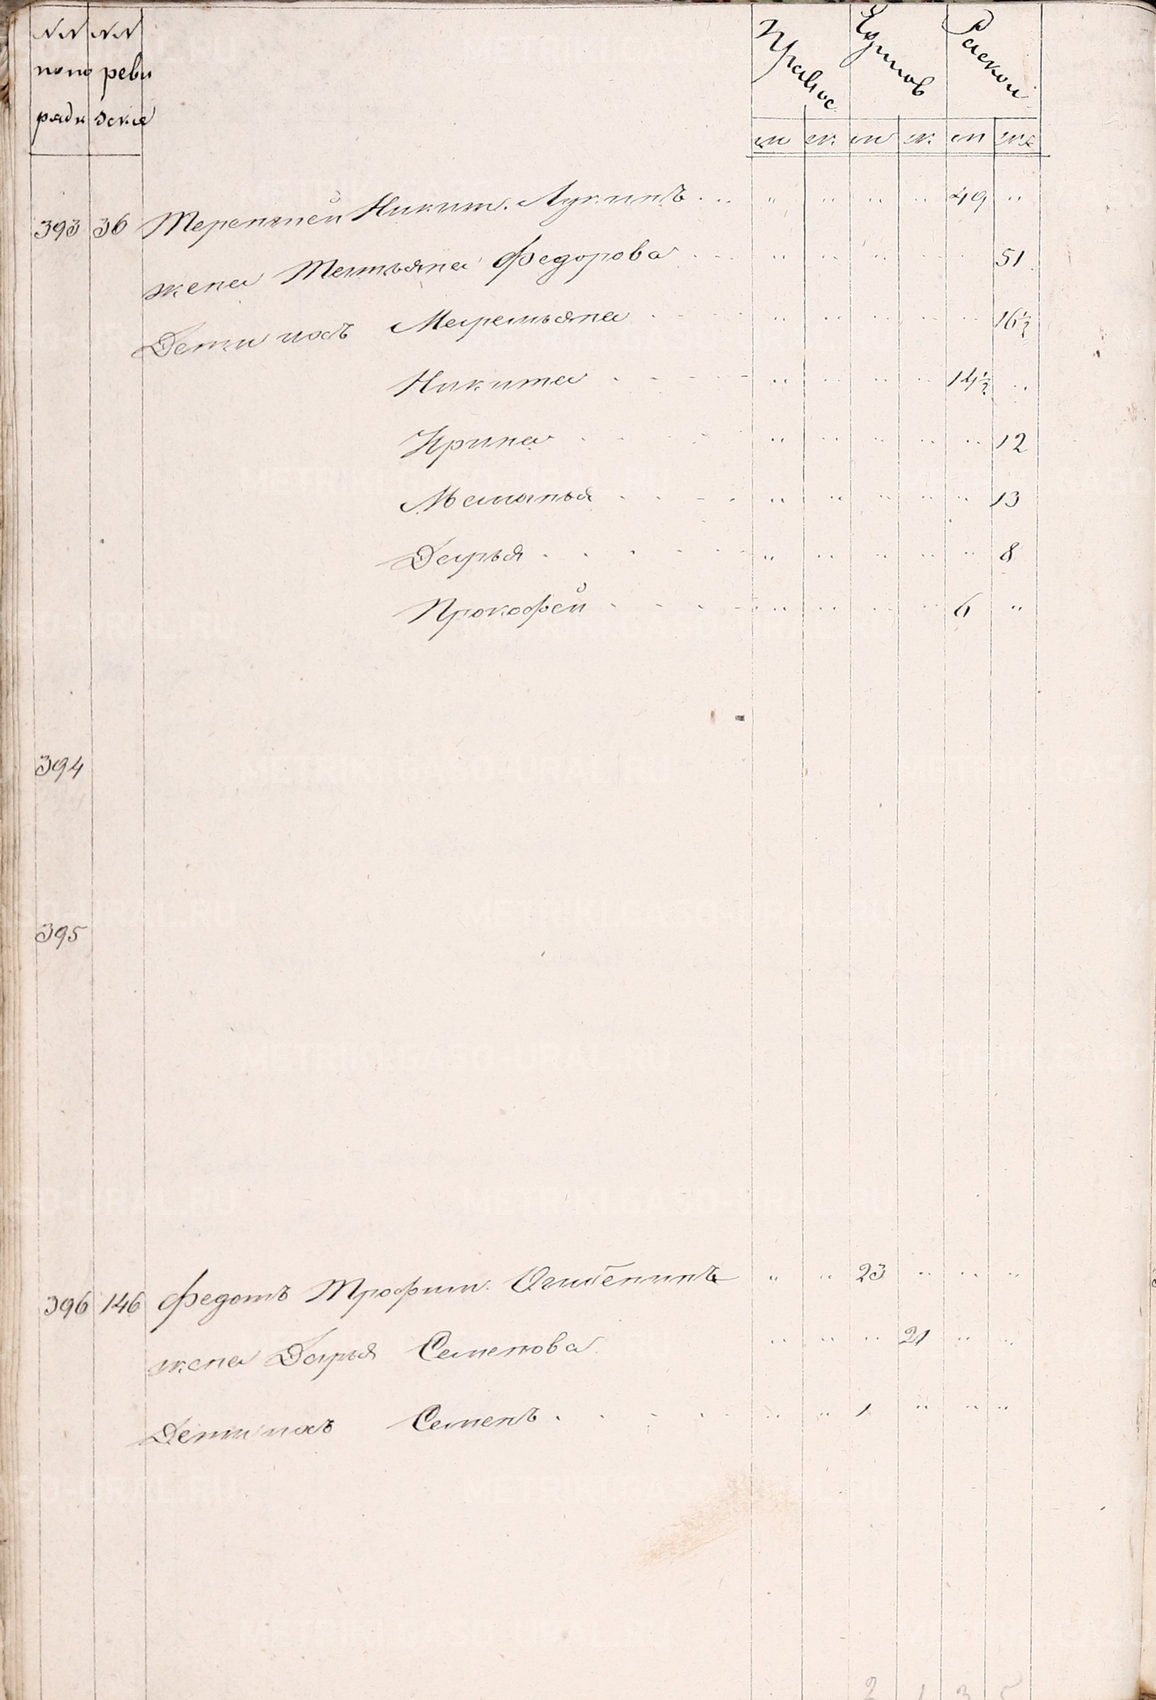 №№ №№ Правос Единов Раскол
по по реви
рядк зскіе м ж м ж м ж
393 36 Терентей Никит. Лукинъ . . . " " " " 49 "
жена Татьяна Федорова . . . " " " " " 51
Дети ихъ Маремьяна . . . " " " " " 16½
Никита . . . " " " " 14½ "
Ирина . . . " " " " " 12
Маланья . . . " " " " " 13
Дарья . . . " " " " " 8
Прокофей . . . " " " " 6 "
394
395
396 146 Федотъ Трофим. Огибенинъ " " 23 " " "
жена Дарья Семенова " " " 21 " "
Дети ихъ Семенъ . . . " " 1 " " "
2 1 3 5
METRIKI.GASO-URAL.RU